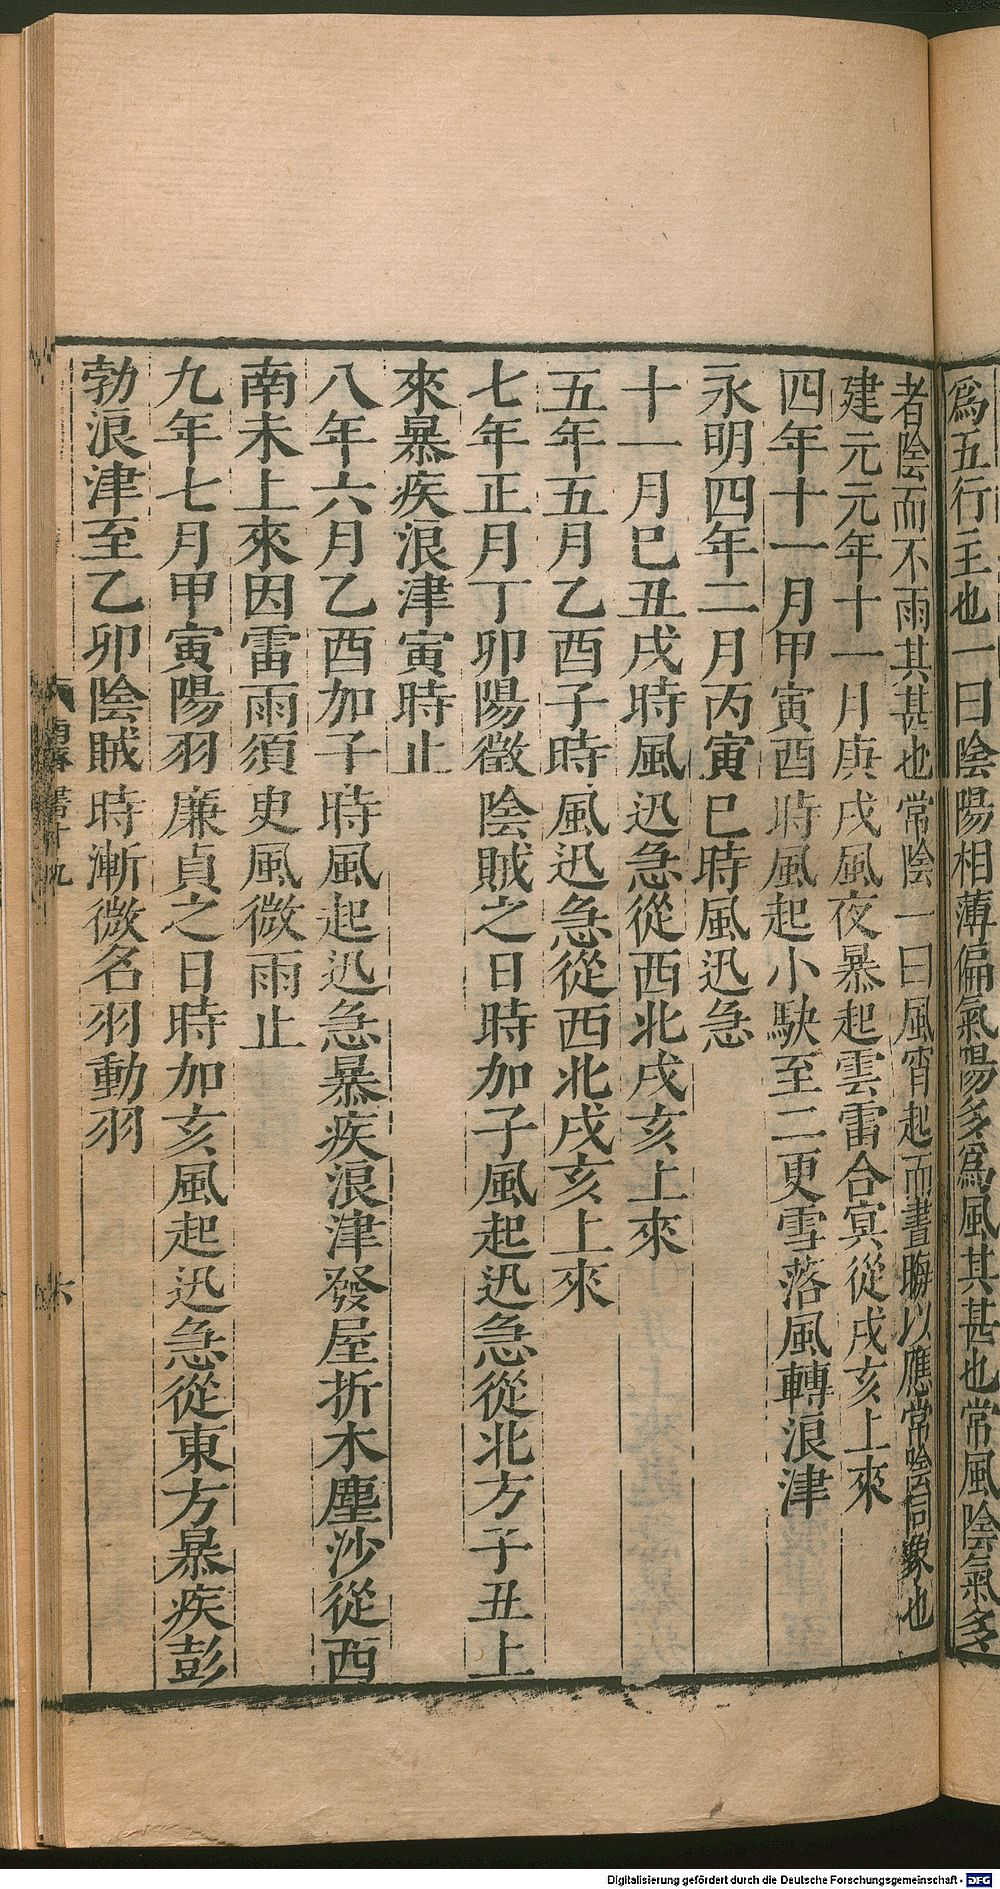 爲五行主也一曰陰陽相薄偏氣陽多爲風其甚也常風陰氣多
者陰而不雨其甚也常陰一曰風宵起而晝晦以應常陰同象也
建元元年十一月庚戌風夜暴起雲雷合冥從戌亥上來
四年十一月甲寅酉時風起小駃至二更雪落風轉浪津
永明四年二月丙寅巳時風迅急
十一月巳丑戌時風迅急從西北戌亥上來
五年五月乙酉子時風迅急從西北戌亥上來
七年正月丁卯陽徵陰賊之日時加子風起迅急從北方子丑上
來暴疾浪津寅時止
八年六月乙酉加子時風起迅急暴疾浪津發屋折木塵沙從西
南未上來因雷雨須臾風微雨止
九年七月甲寅陽羽廉貞之日時加亥風起迅急從東方暴疾彭
勃浪津至乙卯陰賊時漸微名羽動羽
六
Digitalisierung gefördert durch die Deutsche Forschungsgemeinschaft - DFG